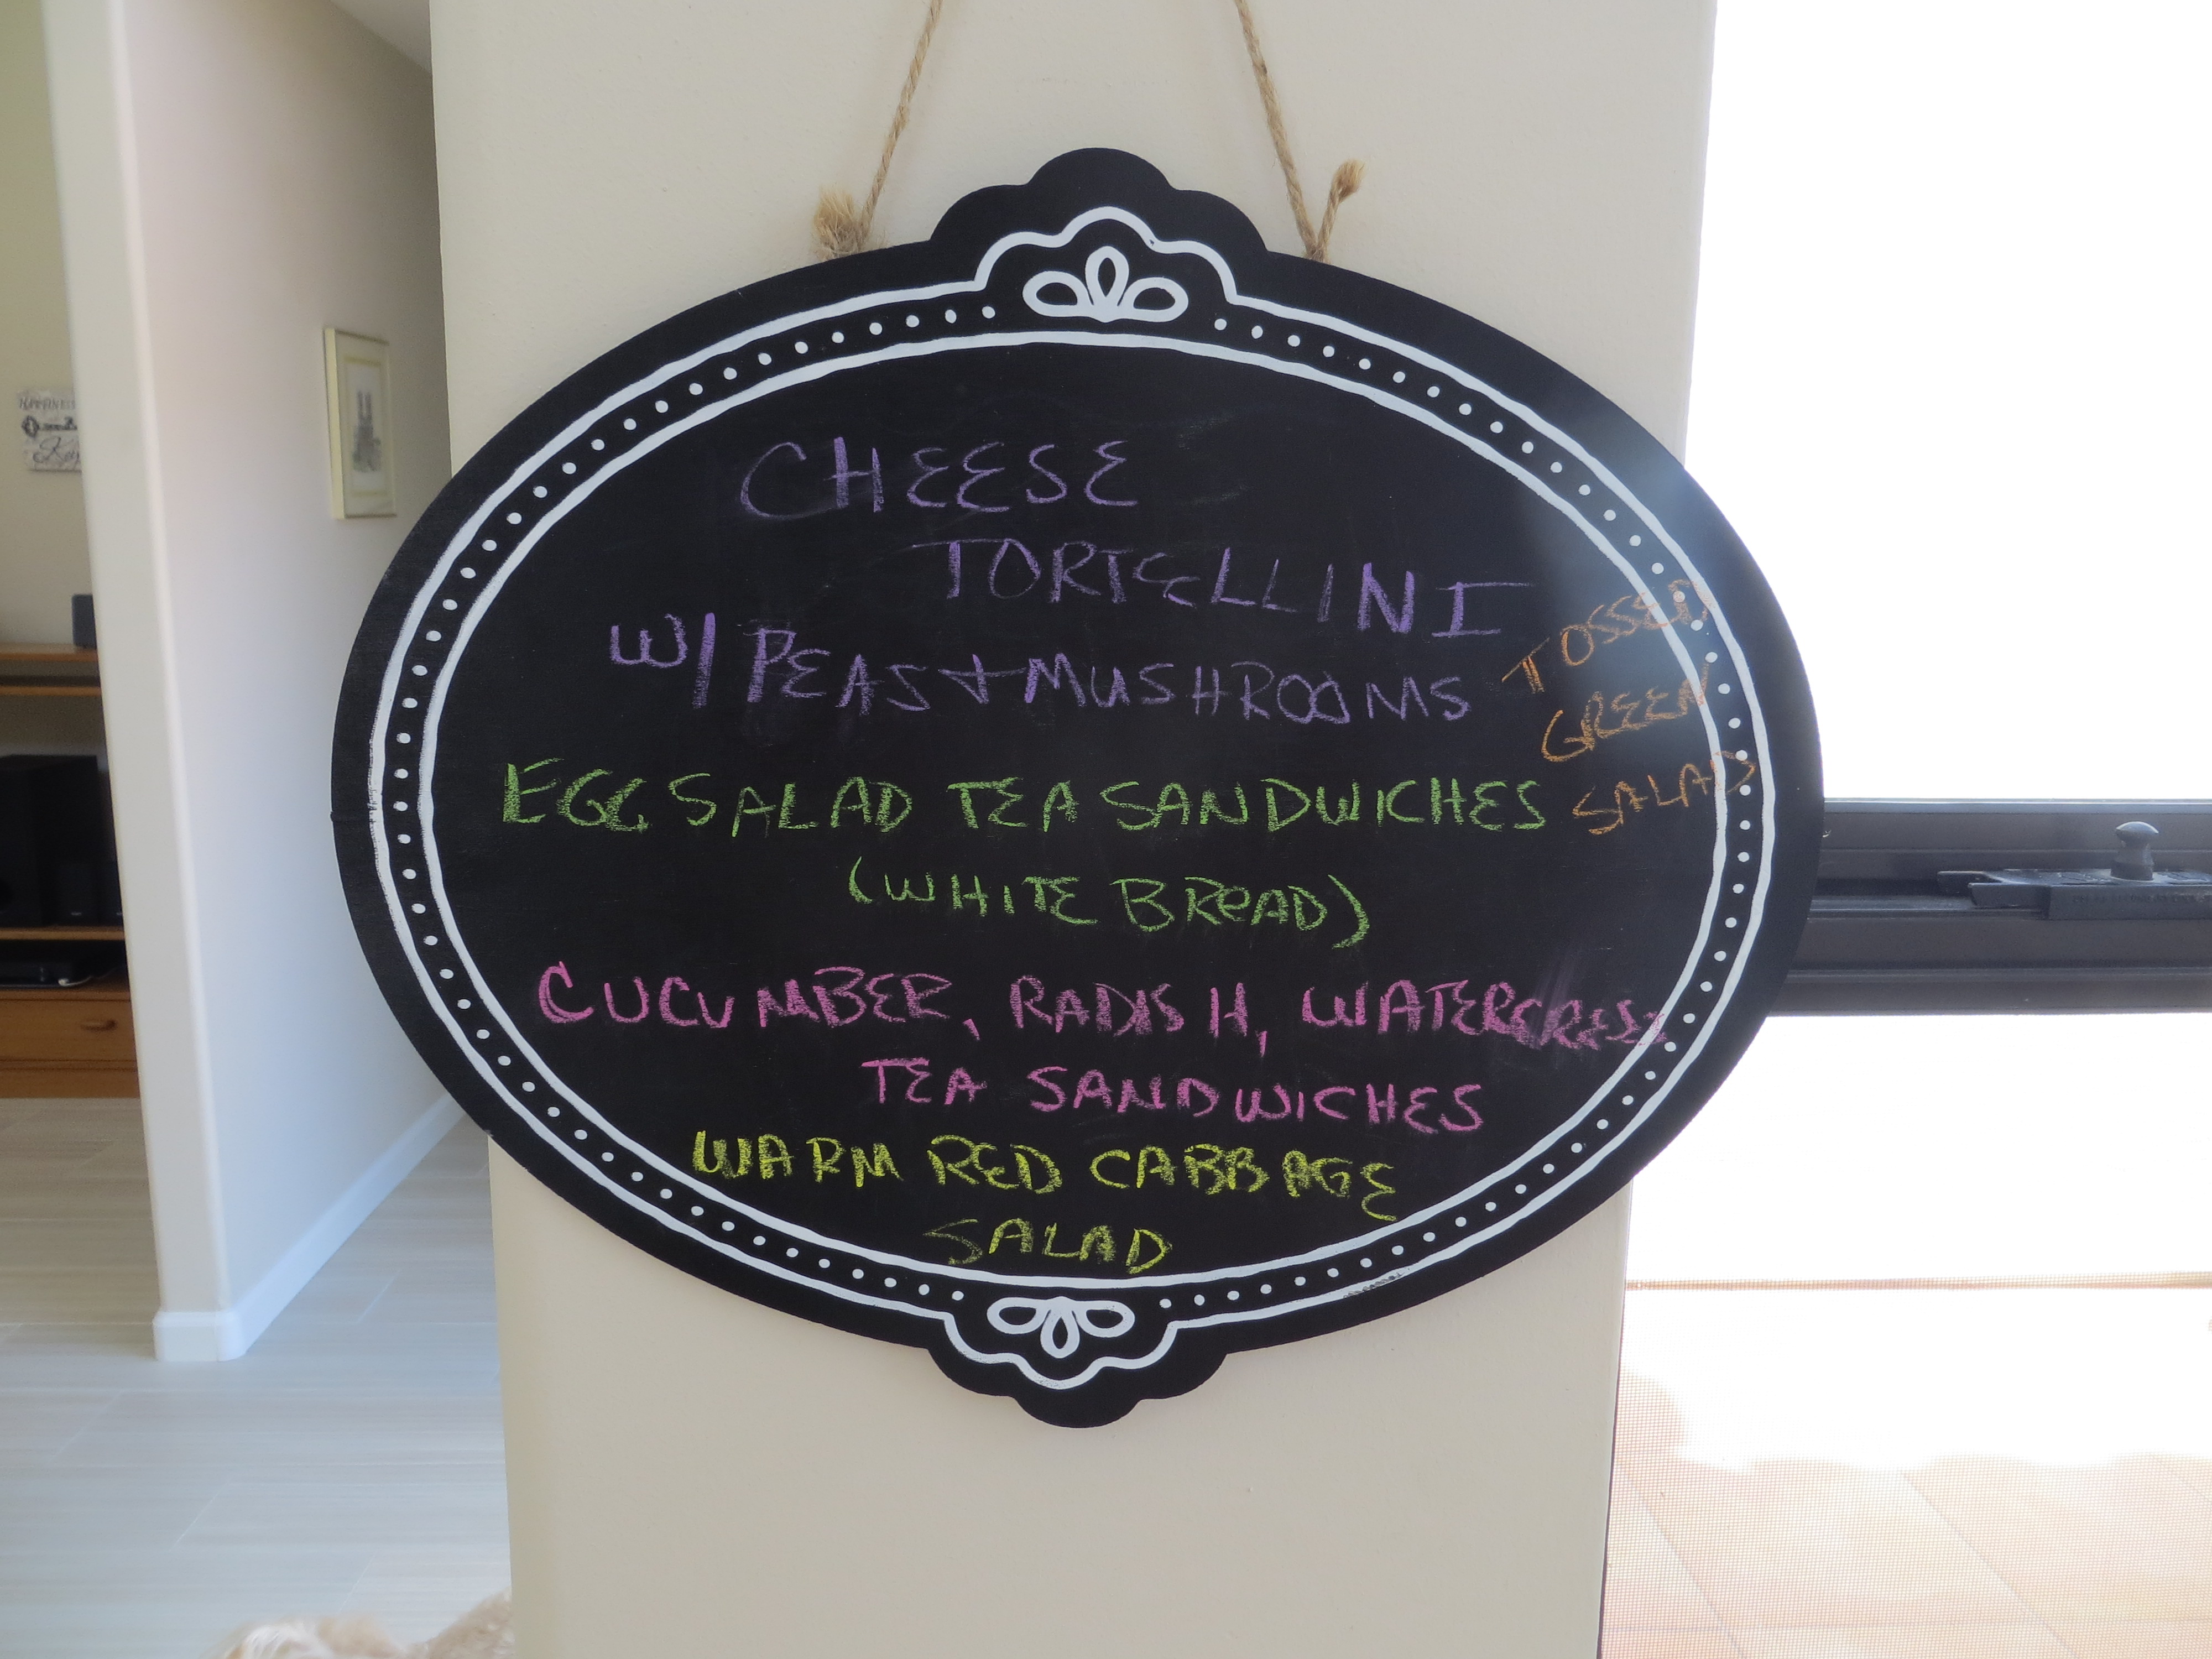 CHEESE
TORTELLINI
W/ PEAS + MUSHROOMS
TOSSED
GREEN
SALAD
EGG SALAD TEA SANDWICHES
(WHITE BREAD)
CUCUMBER, RADISH, WATERCRESS
TEA SANDWICHES
WARM RED CABBAGE
SALAD